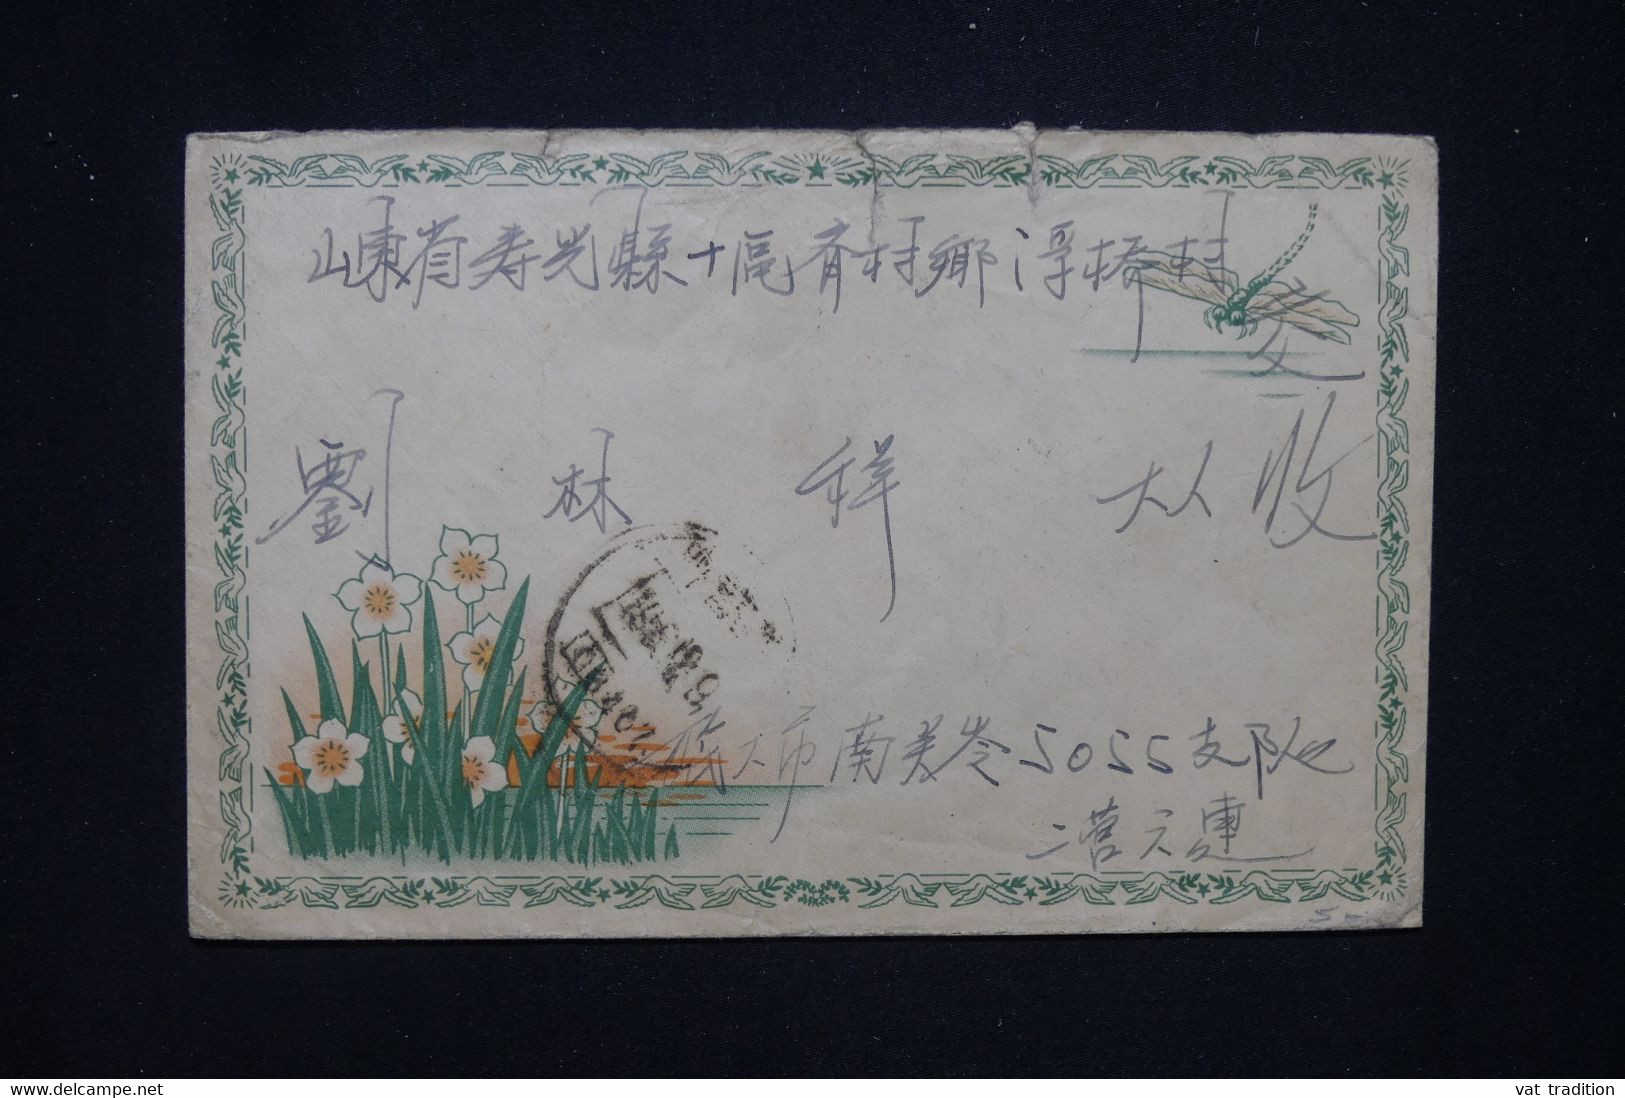 山東省寿光縣十區齐村鄉浮桥村
交
劉林祥大人收
旅大市南关岭5055支队
二营六連
delcampe.net
vat tradition